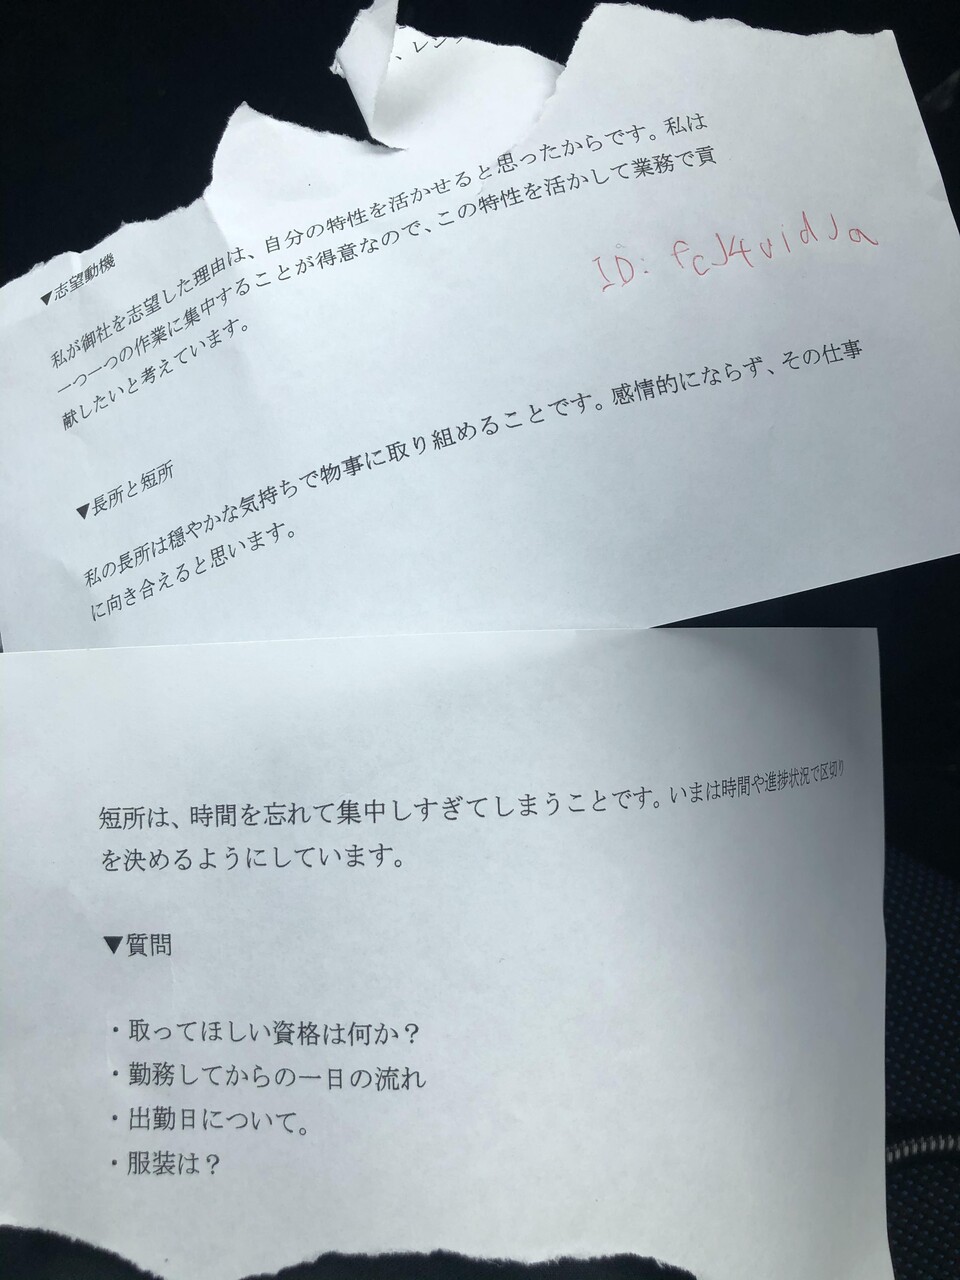 、レン
▼志望動機
私が御社を志望した理由は、自分の特性を活かせると思ったからです。私は
一つ一つの作業に集中することが得意なので、この特性を活かして業務で貢
献したいと考えています。
ID: fcJ4vidJa
▼長所と短所
私の長所は穏やかな気持ちで物事に取り組めることです。感情的にならず、その仕事
に向き合えると思います。
短所は、時間を忘れて集中しすぎてしまうことです。いまは時間や進捗状況で区切り
を決めるようにしています。
▼質問
・取ってほしい資格は何か？
・勤務してからの一日の流れ
・出勤日について。
・服装は？